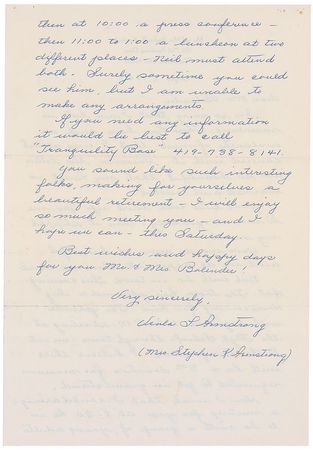 then at 10:00 a press conference –
then 11:00 to 1:00 a luncheon at two
different places – Neil must attend
both. Surely sometime you could
see him, but I am unable to
make any arrangements.
If you need any information
it would be best to call
"Tranquility Base" 419-738-8141.
You sound like such interesting
folks, making for yourselves a
beautiful retirement – I will enjoy
so much meeting you – and I
hope we can – this Saturday.
Best wishes and happy days
for you Mr. & Mrs. Bolinder!
Very sincerely,
Viola L Armstrong
(Mrs Stephen K Armstrong)